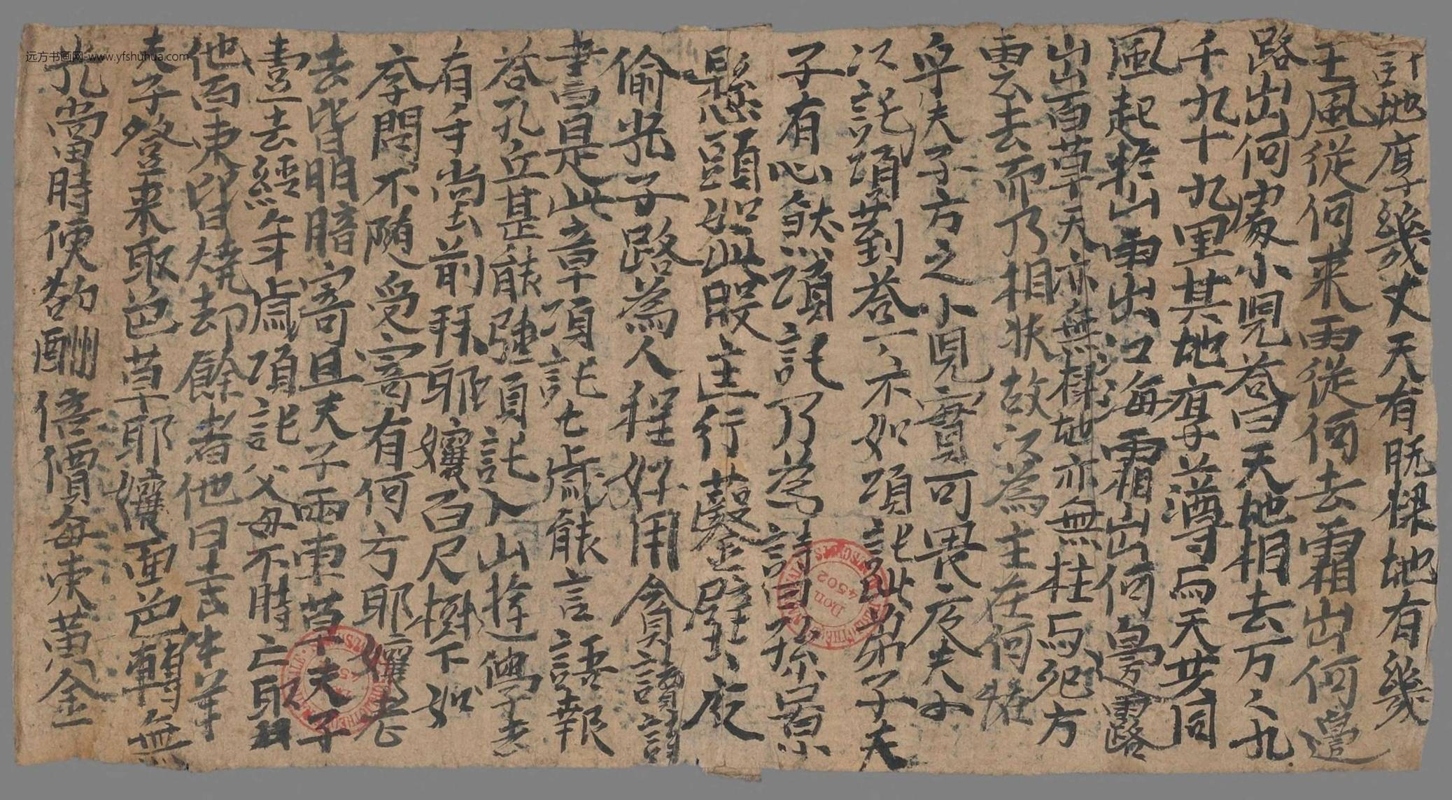 計地度幾丈天有既樑地有幾
王風從何來雨從何去霜出何邊
路出何處小兒答曰天地相去万々九
千九十九里其地厚薄与天共同
風起於山雨出江海霜出何邊露路
出百草天亦無樑地亦無柱与犯方
雲去而乃相扶故以為主在何恠
乎夫子方之小兒實可畏度夫子
次託項對答一々不如項託此弟子夫
子有心煞項託乃為詩曰孫景
懸頭如此股迬行鑿壁夜
偷光子路為人程好用貪讀詩
書是此章項託七歲能言語報
答孔丘甚能強項託入山遊學去
有手當前拜耶孃百尺樹下如
李問不隨受寄有何方耶孃老
去皆明暗寄且夫子兩車草夫子
壹去經年歲項託父母不時亡取
他百束皆燒却餘者他日羊
夫子登來取色草耶孃面色轉無
孔當時便勑酬倍價每束黃金
远方书画网-www.yfshuhua.com